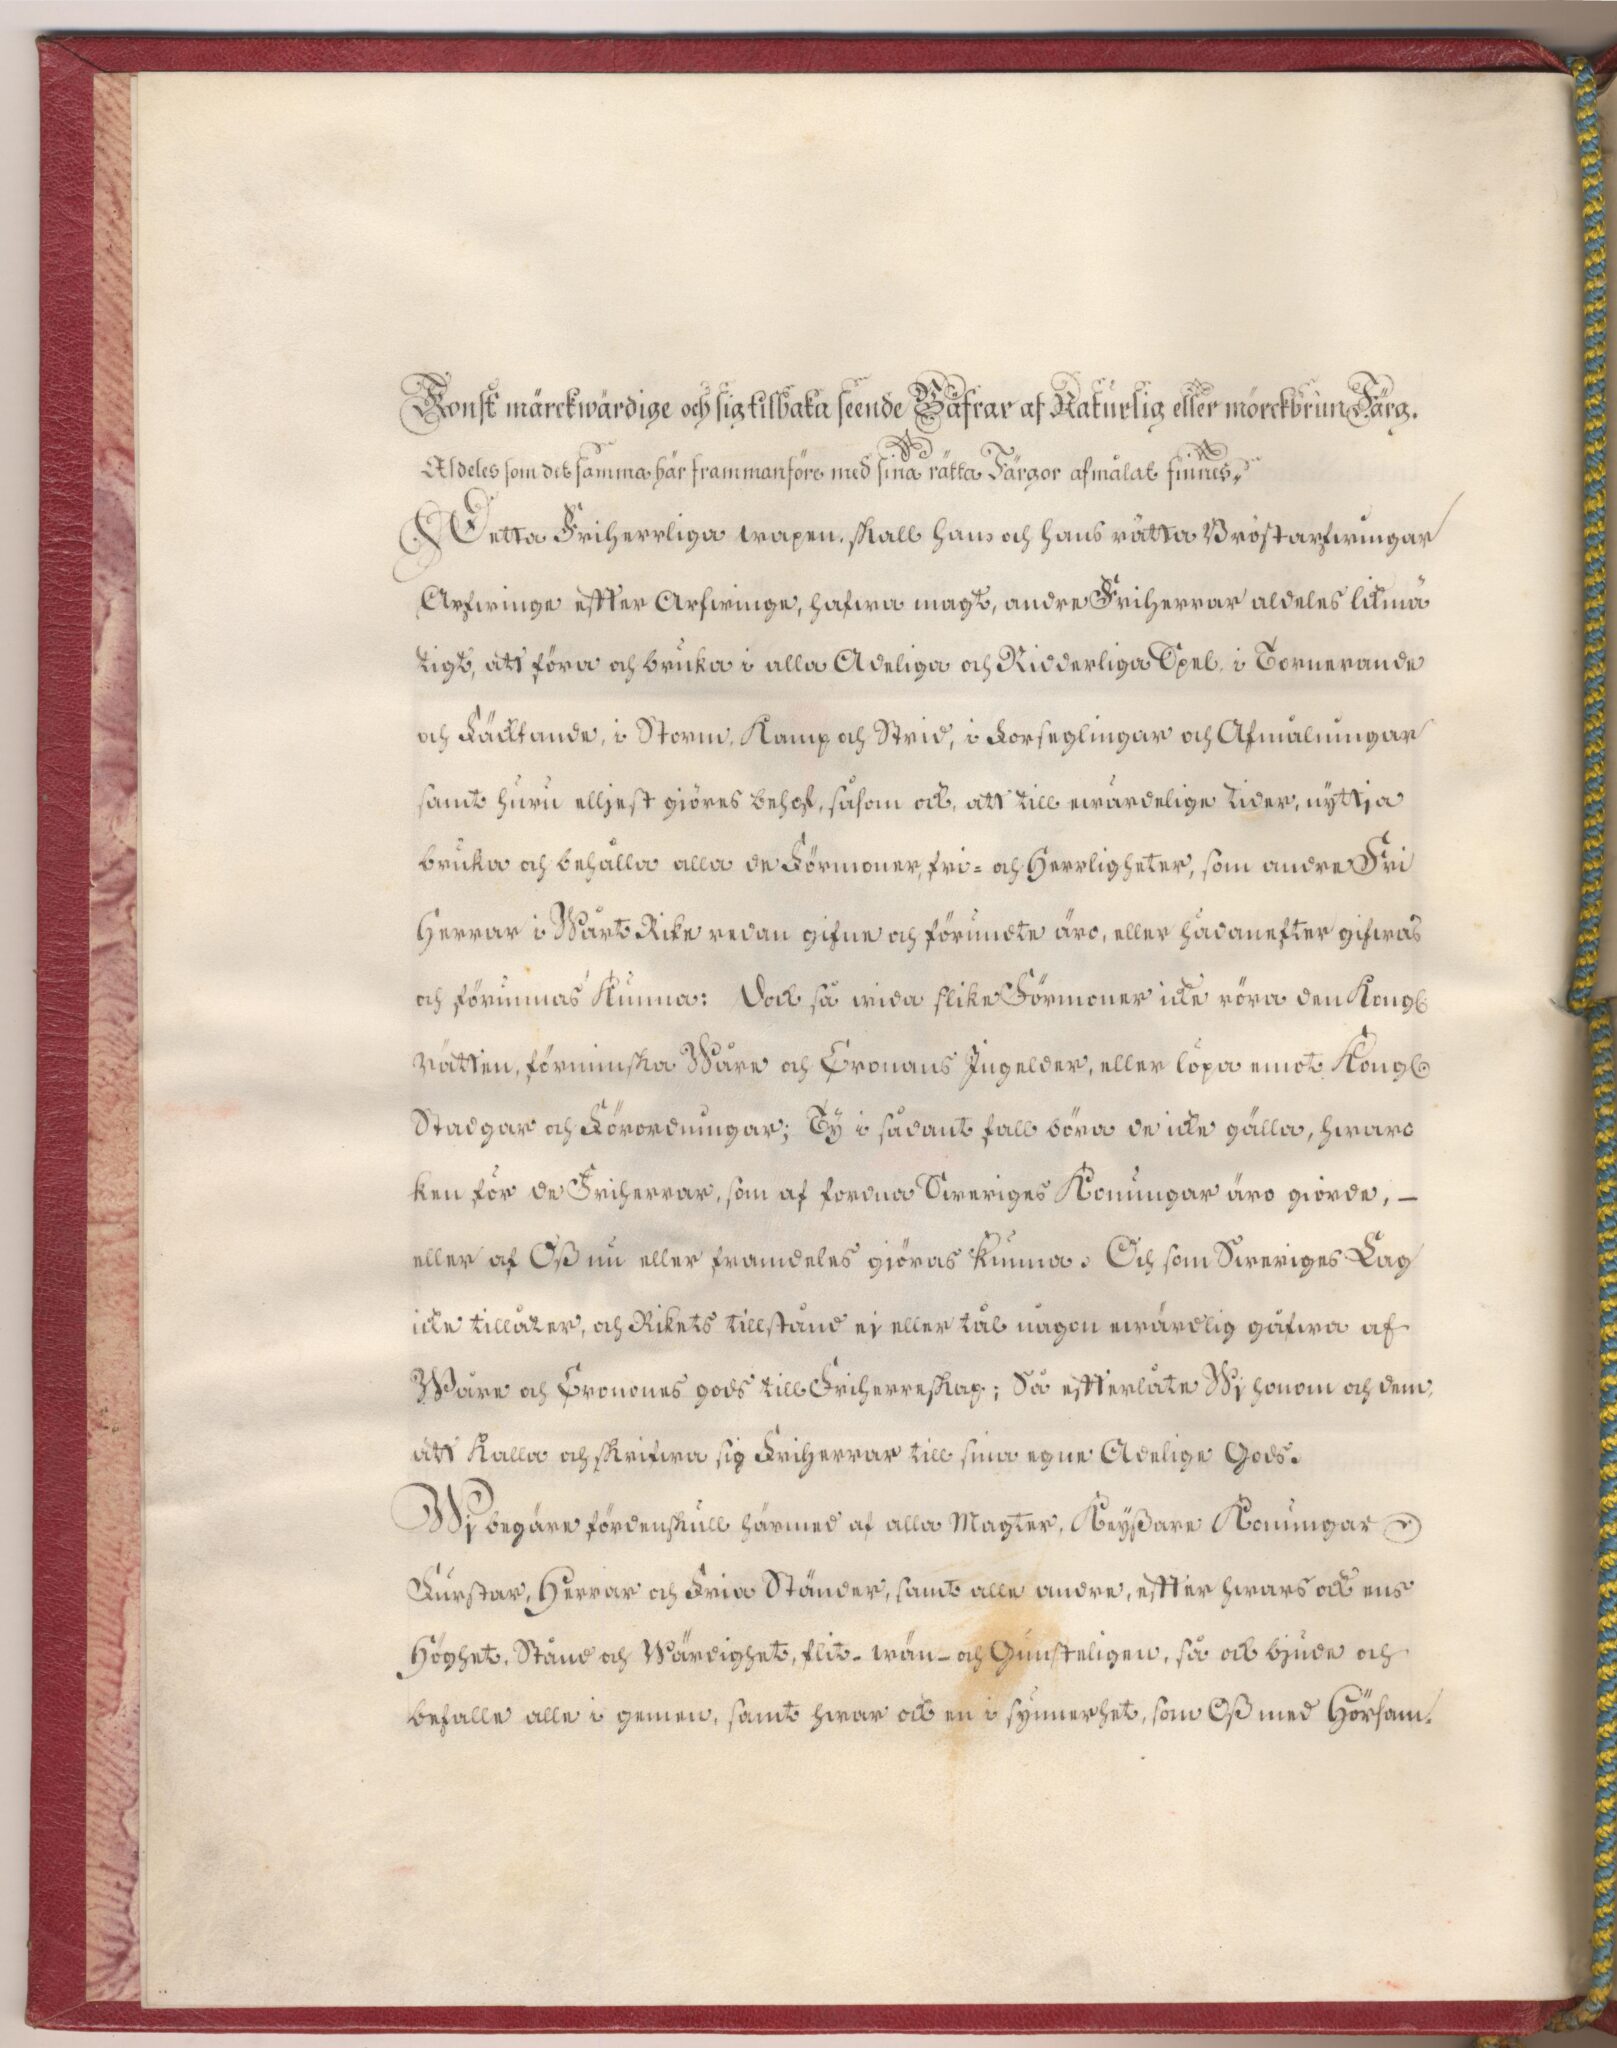 Konst märckwärdige och sig tilbaka seende Bäfrar af Naturlig eller mörckbrun Färg.
Aldeles som det samma här frammanföre med sina rätta Färgor afmålat finnes.
Detta Friherrliga wapen, skall han och hans rätta Bröstarfwingar
Arfwinge effter Arfwinge, hafwa magt, andre Friherrar aldeles likmä
tigt, att föra och bruka i alla Adeliga och Ridderliga Spel, i Tornerande
och Fäcktande, i Storm, Kamp och Strid, i Forseglingar och Afmålningar
samt huru elljest giöres behof, såsom ock, att till ewärdelige tider, nyttja
bruka och behålla alla de Förmoner, fri- och Herrligheter, som andre Fri
Herrar i Wårt Rike redan gifne och förundte äro, eller hädanefter gifwas
och förunnas kunna: Dock så wida slike Förmoner icke röra den Kongl.
Rätten, förminska Wåre och Cronans Ingelder, eller löpa emot Kongl.
Stadgar och Förordningar; Ty i sådant fall böra de icke gälla, hwarc
ken för de Friherrar, som af fordna Sweriges Konungar äro giorde, –
eller af Oß nu eller framdeles gjöras kunna. Och som Sweriges Lag
icke tillåter, och Rikets tillstånd ej eller tål någon ewärdlig gåfwa af
Wåre och Cronones gods till Friherreskap; Så effterlåte Wj honom och dem,
att kalla och skrifwa sig Friherrar till sina egne Adelige Gods.
Wj begäre fördenskull härmed af alla Magter, Keyßare Konungar
Furstar, Herrar och Fria Ständer, samt alle andre, effter hwars ock ens
Höghet, Stånd och Wärdighet, flit- wän- och Gunsteligen, så ock bjude och
befalle alle i gemen, samt hwar ock en i synnerhet, som Oß med Hörsam-